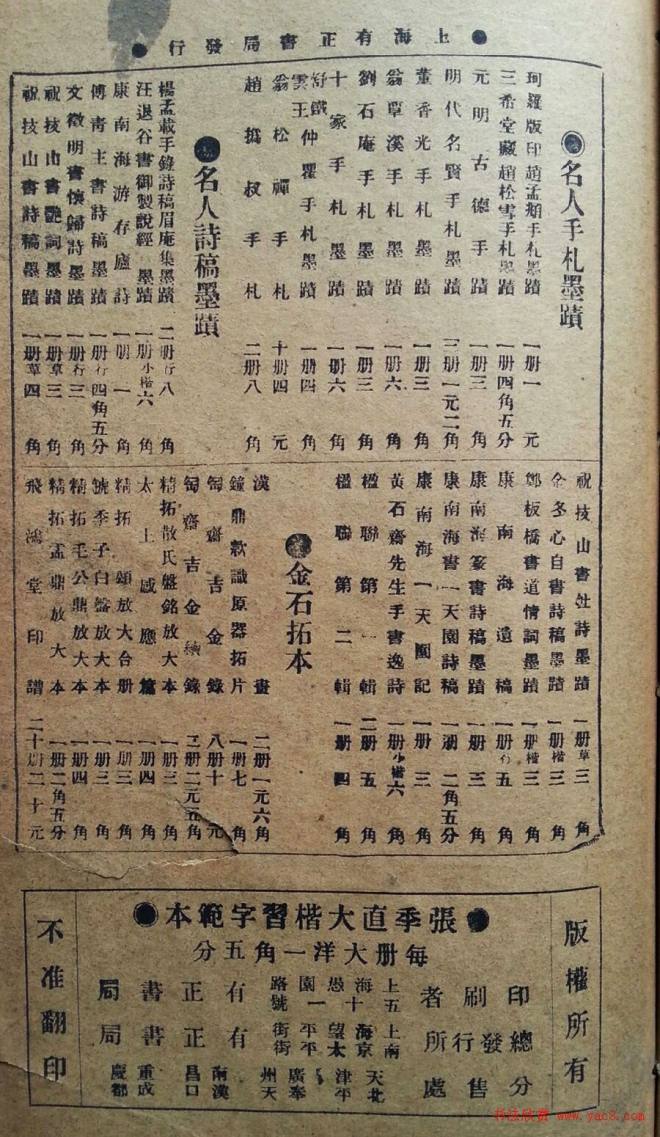 上海有正書局發行
名人手札墨蹟
珂羅版印趙孟頫手札墨蹟 一册一元
三希堂藏趙松雪手札墨蹟 一册四角五分
元明古德手蹟 一册三角
明代名賢手札墨蹟 三册一元二角
董香光手札墨蹟 一册三角
翁覃溪手札墨蹟 一册六角
劉石庵手札墨蹟 一册三角
十家手札墨蹟 一册六角
舒鐵雲王仲瞿手札墨蹟 一册四角
翁松禪手札 十册四元
趙撝叔手札 二册八角
名人詩稿墨蹟
楊孟載手錄詩稿眉庵集墨蹟 二册行八角
汪退谷書御製說經墨蹟 一册小楷六角
康南海游存廬詩 一册一角
傅青主書詩稿墨蹟 一册行四角五分
文徵明書懷歸詩墨蹟 一册行三角
祝技山書艷詞墨蹟 一册草三角
祝技山書詩稿墨蹟 一册草四角
祝技山書詩墨蹟 一册草三角
金冬心自書詩稿墨蹟 一册楷三角
鄭板橋書道情詞墨蹟 一册楷三角
康南海遺稿 一册行五角
康南海篆書詩稿墨蹟 一册三角
康南海書一天園詩稿 一册二角五分
康南海一天園記 一册三角
黃石齋先生手書逸詩 一册小楷六角
楹聯第一輯 二册五角
楹聯第二輯 一册四角
金石拓本
漢畫 二册一元六角
鐘鼎款識原器拓片 一册七角
匋齋吉金錄 八册十元
匋齋吉金續錄 二册二元五角
精拓散氏盤銘放大本 一册三角
太上感應篇 一册四角
精拓頌放大合册 一册三角
虢季子白盤放大本 一册三角
精拓毛公鼎放大本 一册四角
精拓盂鼎放大本 一册二角五分
飛鴻堂印譜 二十册二十元
版權所有
張季直大楷習字範本
每册大洋一角五分
印刷者 上海愚園路五十一號 有正書局
總發行所 上海望平街 南京太平街 有正書局
分售處 天津 北平 廣州 奉天 南昌 漢口 重慶 成都
不准翻印
书法欣赏 www.yac8.com